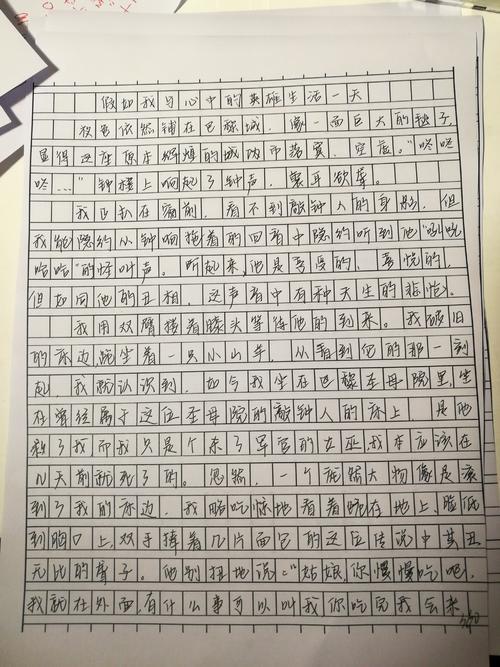 假如我与心中的英雄生活一天
夜色依然铺在巴黎城，像一面巨大的独子，
显得这座原本辉煌的城内市落寞，空虚。“咚咚
咚……”钟楼上响起了钟声，震耳欲聋。
我正趴在窗前，看不到敲钟人的身影，但
我能隐约从钟响拖着的回音中隐约听到他“叽叽
哈哈”的怪叫声。听起来，他是享受的，喜悦的，
但如同他的丑相，这声音中有种天生的悲怆。
我用双臂搂着膝头等待他的到来。我破旧
的床边，跪坐着一只小山羊，从看到它的那一刻
起，我就认识到，如今我坐在巴黎圣母院里，坐
在曾经属于这位圣母院的敲钟人的床上 是他
救了我而我只是个杀了军官的女巫，我本应该在
几天前就死了的。忽然，一个庞然大物像是滚
到了我的床边，我略吃惊地看着跪在地上，脸低
到胸口上，双手捧着几片面包的这位传说中其丑
无比的聋子。他别扭地说：“姑娘，你慢慢吃吧，
我就在外面，有什么事可以叫我你吃完我会来